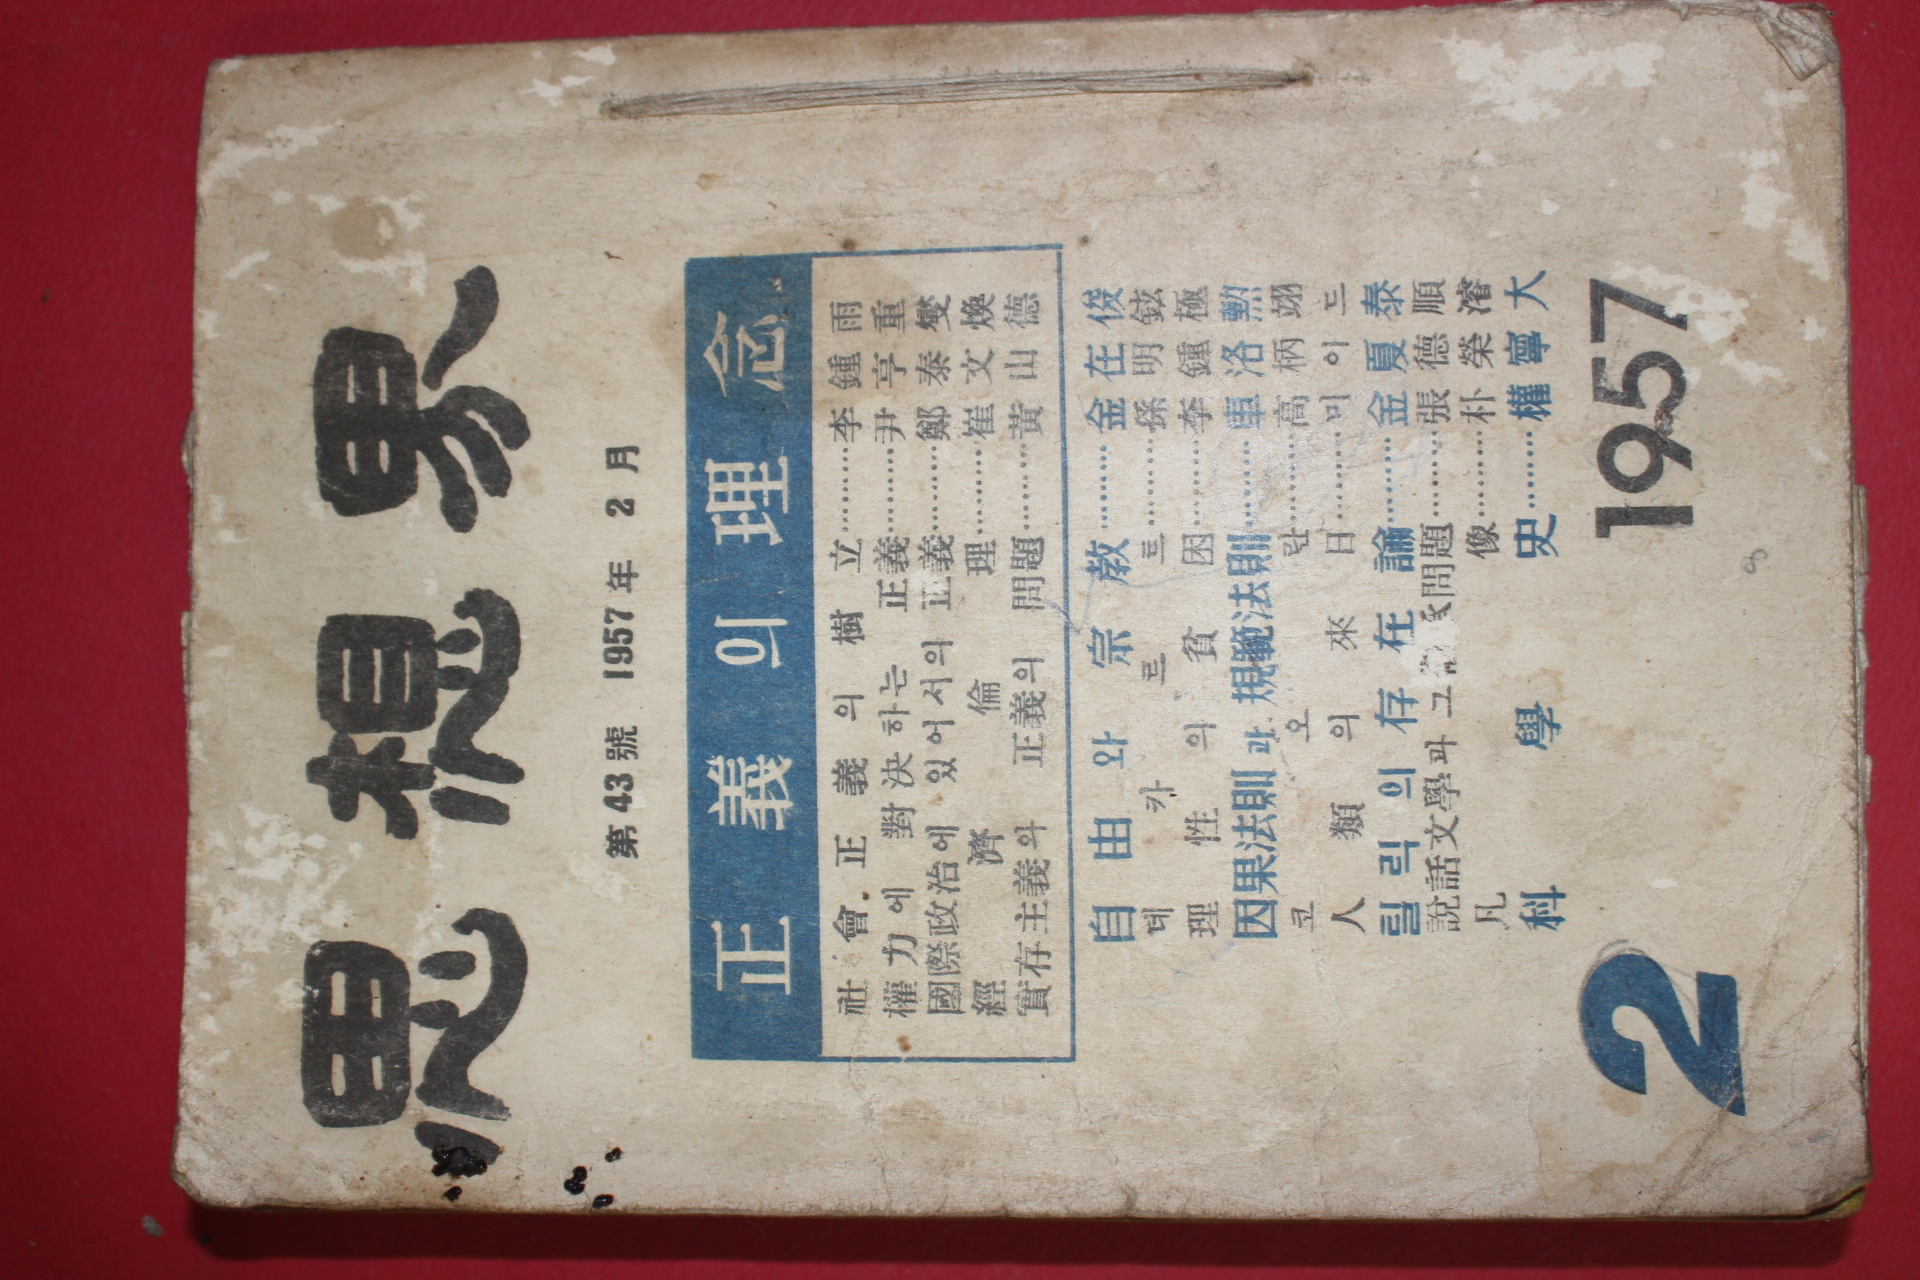 思想界
第43號 1957年 2月
正義의理念
社會正義의樹立………李鍾雨
權力에對決하는正義………尹亨重
國際政治에있어서의正義………鄭泰燮
經濟倫理………崔文煥
實存主義와正義의問題………黃山德
自由와宗敎………金在俊
데카르트………孫明鉉
理性의貧困………李鍾極
因果法則과規範法則………車洛勳
코오란………高柄翊
人類의來日………미이드
틸릭의存在論………金夏泰
說話文學과그 問題………張德順
凡像………朴榮濬
科學史………權寧大
2 1957